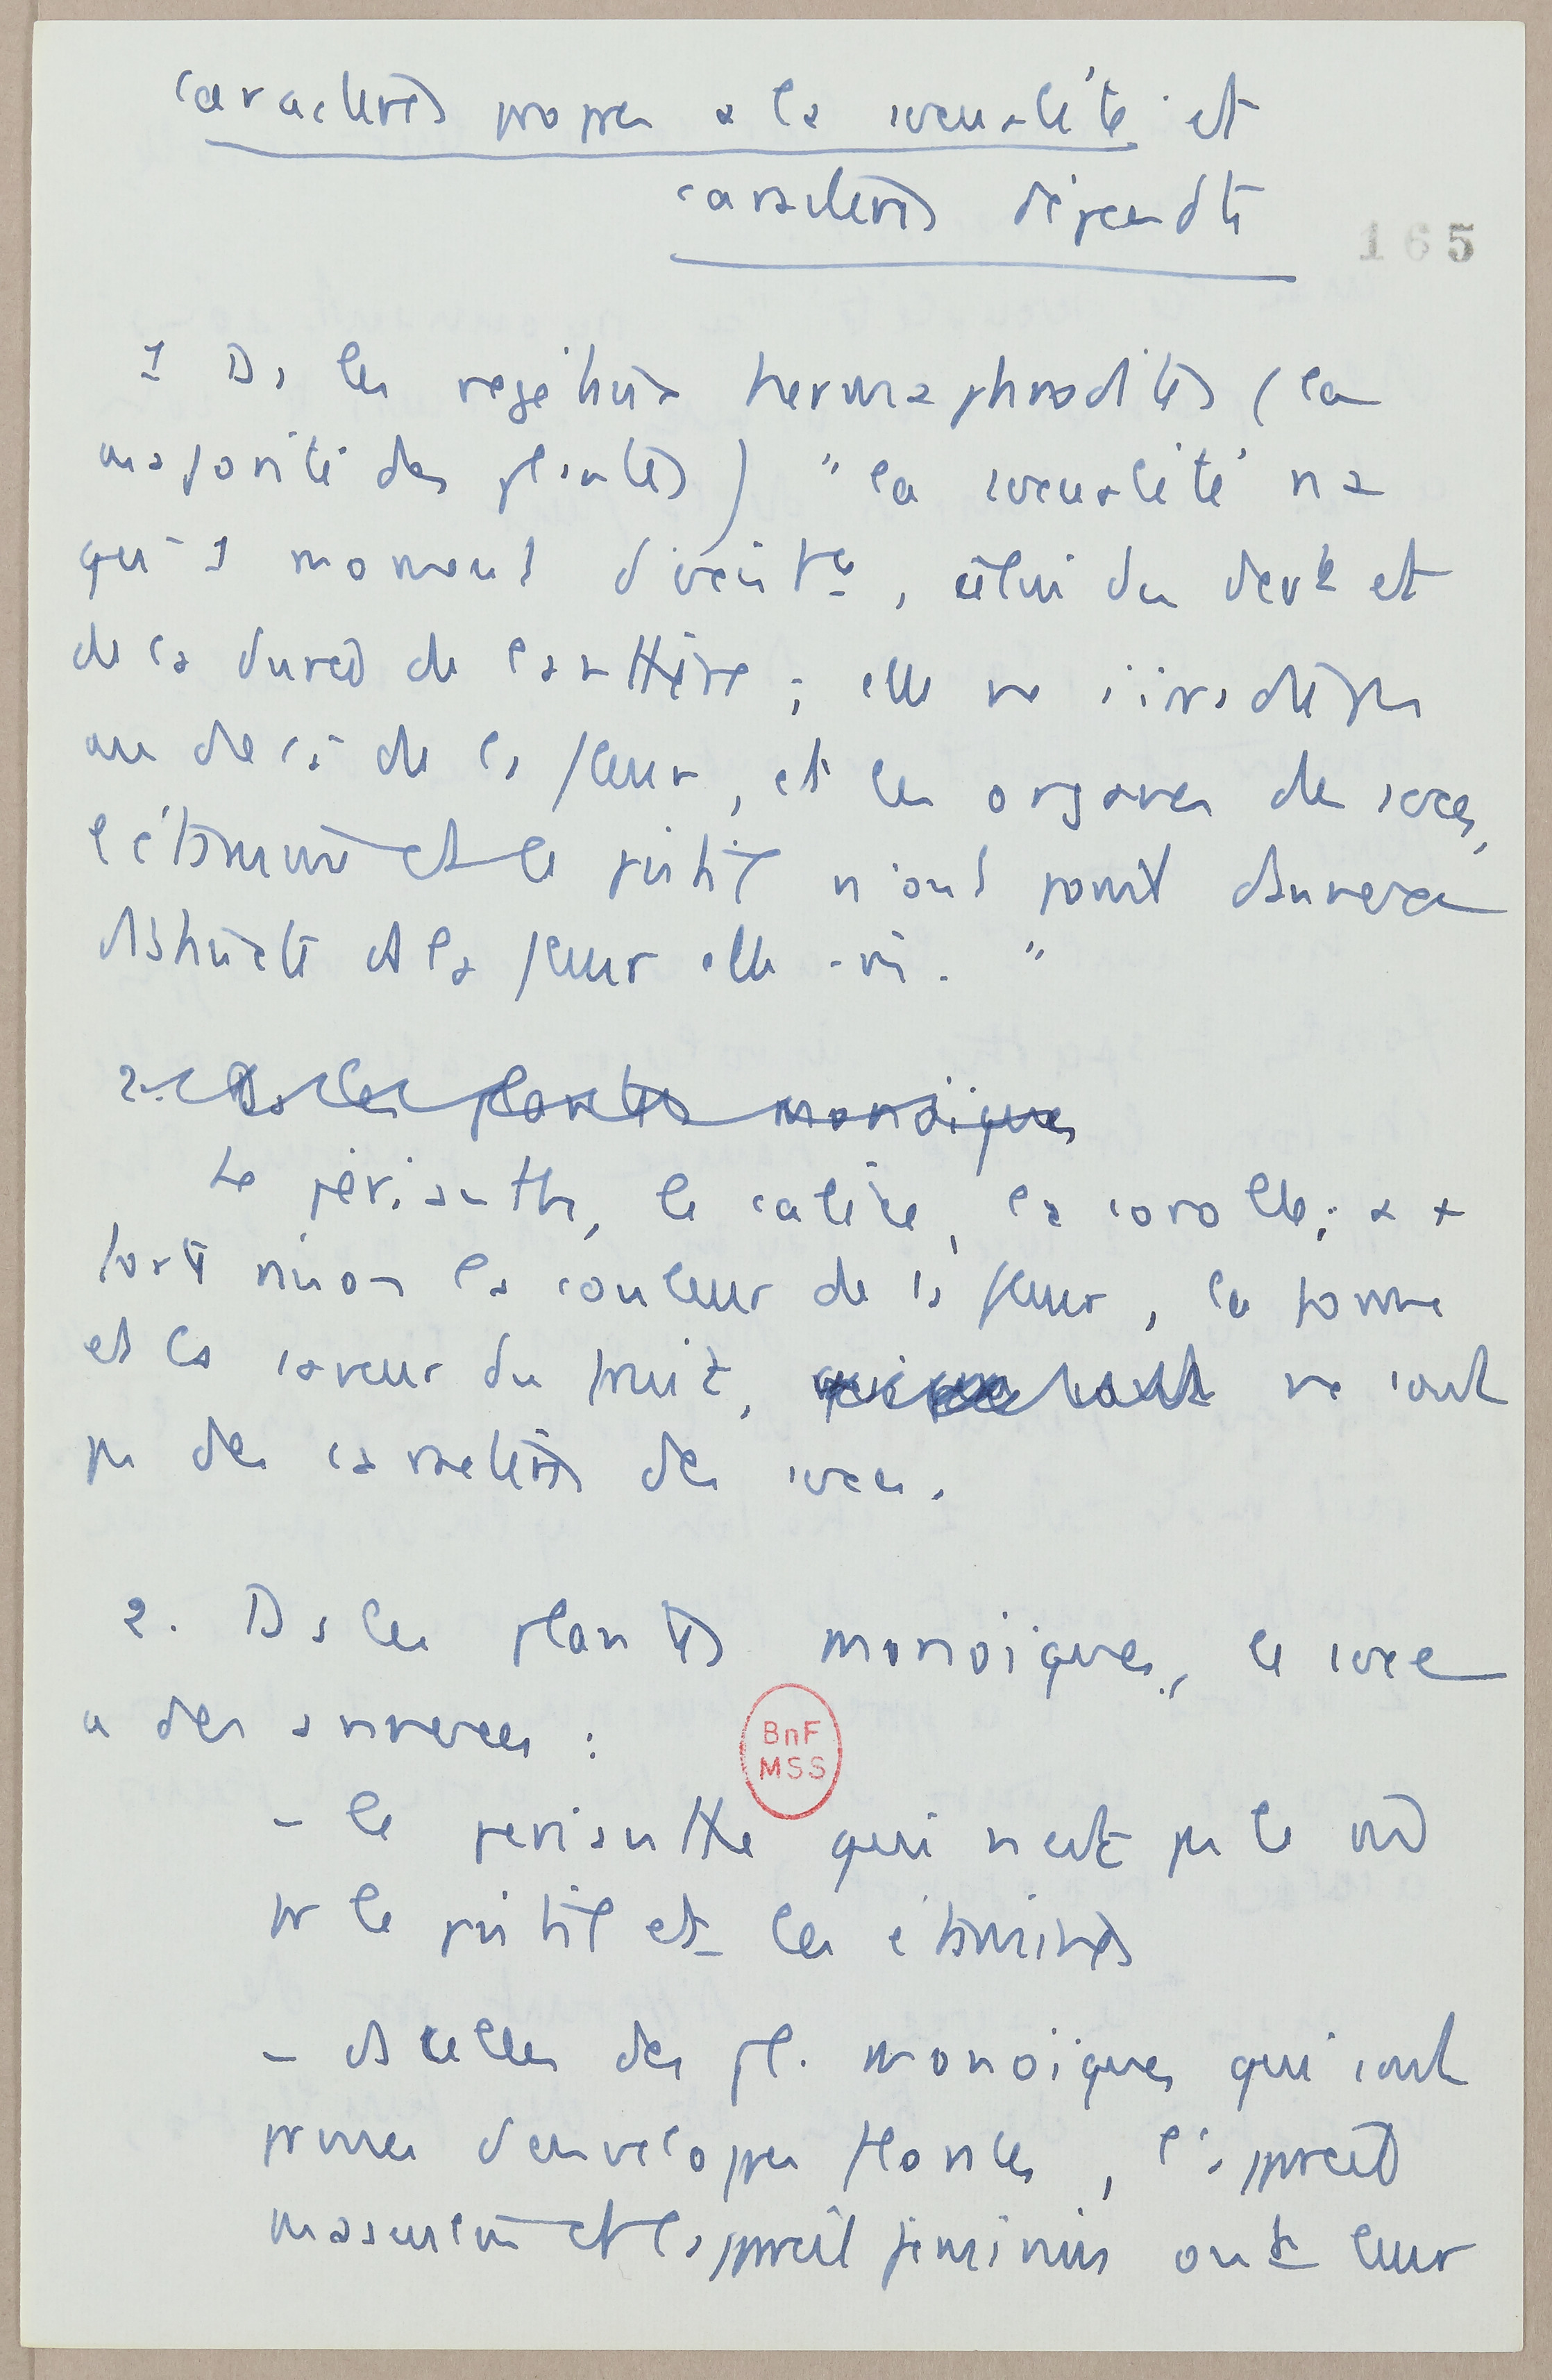 caractères propres à la sexualité et
caractères dépendts
165
1 Ds les végétaux hermaphrodites (la
majorité des plantes) "la sexualité n'a
qu'1 moment d'existce, celui du devt et
de la durée de l'anthère ; elle ne s'irradie pas
au delà de la fleur, et les organes des sexes,
l'étamine et le pistil n'ont point d'annexes
distincts de la fleur elle-mê. "
2. Ds les plantes monoïques
Le périanthe, le calice, la corolle ; à +
forte raison la couleur de la fleur, la forme
et la saveur du fruit, ne sont
pas des caractères des sexes.
2. Ds les plantes monoïques, le sexe
a des annexes :
- le périanthe qui n'est pas le mê
pr le pistil et les étamines
- ds celles des pl. monoïques qui sont
privées d'enveloppes florales, l'appareil
masculin et l'appareil féminin ont leur
BnF
MSS